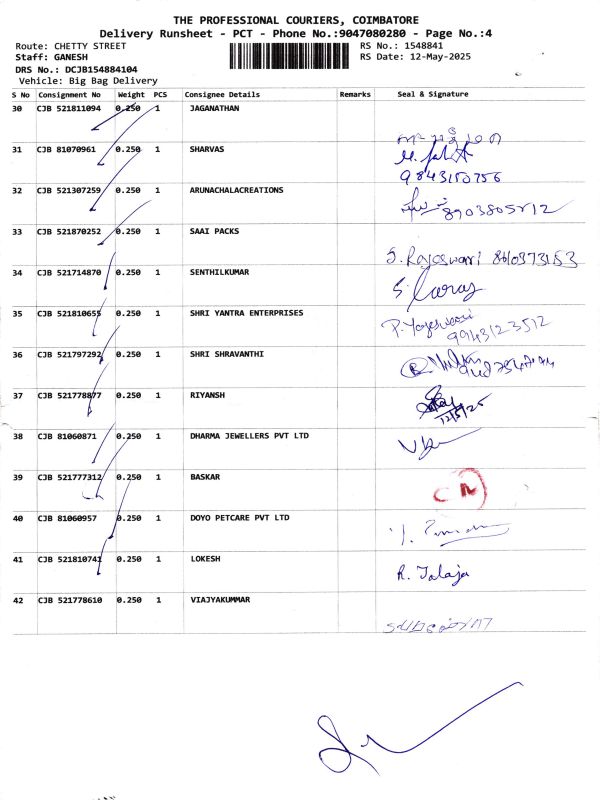 THE PROFESSIONAL COURIERS, COIMBATORE
Delivery Runsheet - PCT - Phone No.:9047080280 - Page No.:4
Route: CHETTY STREET RS No.: 1548841
Staff: GANESH RS Date: 12-May-2025
DRS No.: DCJB154884104
Vehicle: Big Bag Delivery
S No Consignment No Weight PCS Consignee Details Remarks Seal & Signature
30 CJB 521811094 0.250 1 JAGANATHAN
31 CJB 81070961 0.250 1 SHARVAS
9843150756
32 CJB 521307259 0.250 1 ARUNACHALACREATIONS
33 CJB 521870252 0.250 1 SAAI PACKS
S. Rajeswari 8610373153
34 CJB 521714870 0.250 1 SENTHILKUMAR
35 CJB 521810655 0.250 1 SHRI YANTRA ENTERPRISES
P. Yogeswari
9943123512
36 CJB 521797292 0.250 1 SHRI SHRAVANTHI
37 CJB 521778877 0.250 1 RIYANSH
12/5/25
38 CJB 81060871 0.250 1 DHARMA JEWELLERS PVT LTD
39 CJB 521777312 0.250 1 BASKAR
40 CJB 81060957 0.250 1 DOYO PETCARE PVT LTD
41 CJB 521810741 0.250 1 LOKESH
R. Jalaja
42 CJB 521778610 0.250 1 VIAJYAKUMMAR